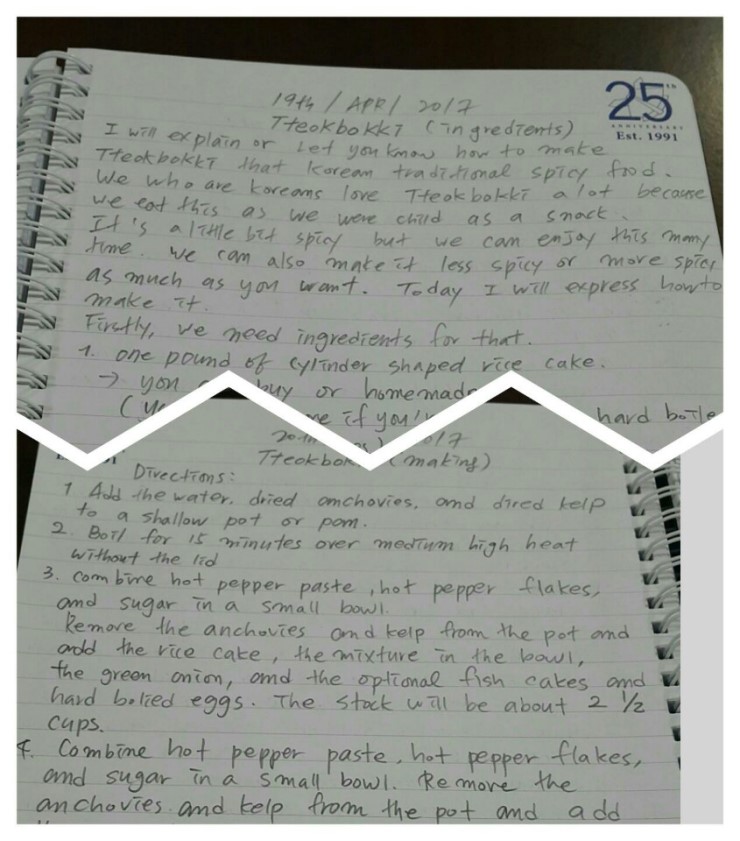 19th / APR / 2017
25TH
ANNIVERSARY
Est. 1991
Tteokbokki (ingredients)
I will explain or let you know how to make
Tteokbokki that Korean traditional spicy food.
We who are koreans love Tteokbokki a lot because
we eat this as we were child as a snack.
It's a little bit spicy but we can enjoy this many
time. we can also make it less spicy or more spicy
as much as you want. Today I will express how to
make it.
Firstly, we need ingredients for that.
1. one pound of cylinder shaped rice cake.
→ you buy or homemade
if you hard boile
Tteokbok (making)
Directions:
1 Add the water, dried anchovies, and dired kelp
to a shallow pot or pan.
2. Boil for 15 minutes over medium high heat
without the lid
3. combine hot pepper paste, hot pepper flakes,
and sugar in a small bowl.
Remove the anchovies and kelp from the pot and
add the rice cake, the mixture in the bowl,
the green onion, and the optional fish cakes and
hard bolied eggs. The stock will be about 2 1/2
cups.
4. Combine hot pepper paste, hot pepper flakes,
and sugar in a small bowl. Remove the
anchovies and kelp from the pot and add